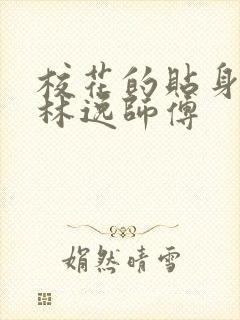 校花的貼身
林逸師傅
娟然晴雪